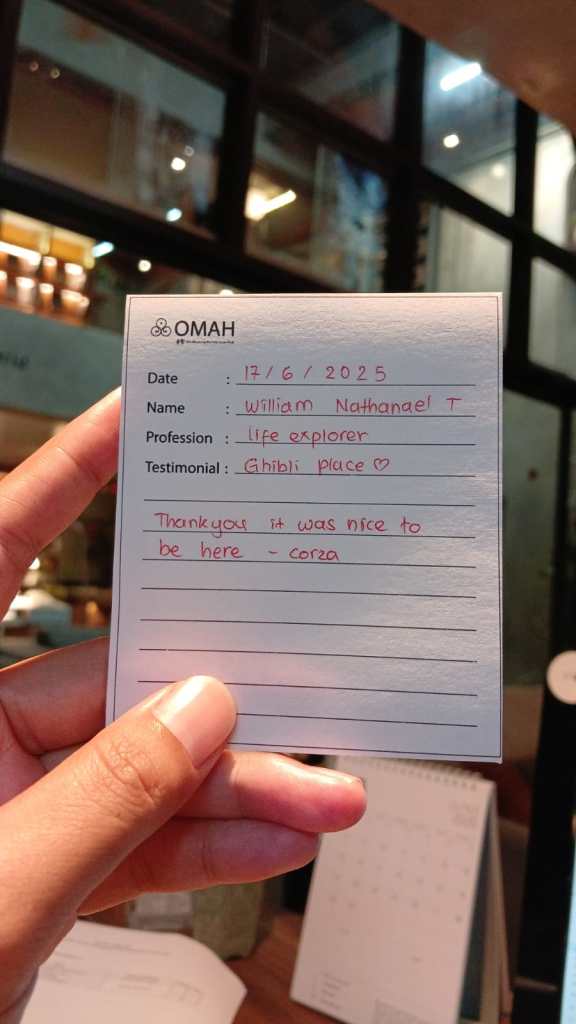 OMAH
Date : 17 / 6 / 2025
Name : William Nathanael T
Profession : life explorer
Testimonial : Ghibli place ♡
Thankyou it was nice to
be here - corza